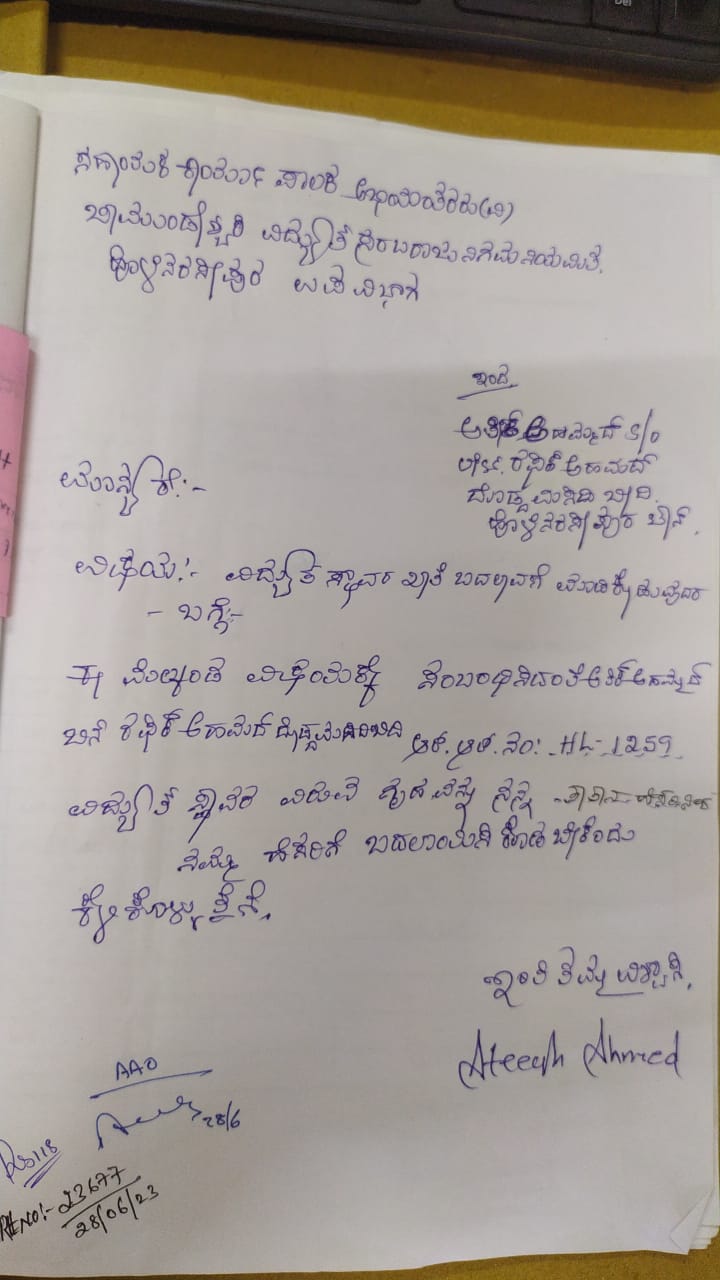 ಸಹಾಯಕ ಕಾರ್ಯ ಪಾಲಕ ಅಭಿಯಂತರರು(ವಿ)
ಚಾಮುಂಡೇಶ್ವರಿ ವಿದ್ಯುತ್ ಸರಬರಾಜು ನಿಗಮ ನಿಯಮಿತ.
ಹೊಳೆನರಸೀಪುರ ಉಪ ವಿಭಾಗ
ಇಂದ.
ಅತೀಕ್ ಅಹಮ್ಮದ್ S/o
ರಫೀಕ್ ಅಹಮದ್
ದೊಡ್ಡ ಮಸೀದಿ ಬೀದಿ.
ಹೊಳೆನರಸೀಪುರ ಟೌನ್.
ಮಾನ್ಯರೇ:-
ವಿಷಯ:- ವಿದ್ಯುತ್ ಸ್ಥಾವರ ಖಾತೆ ಬದಲಾವಣೆ ಮಾಡಿಕೊಡುವುದರ
- ಬಗ್ಗೆ:-
ಈ ಮೇಲ್ಕಂಡ ವಿಷಯಕ್ಕೆ ಸಂಬಂಧಿಸಿದಂತೆ ಅತೀಕ್ ಅಹಮ್ಮದ್
ಬಿನ್ ರಫೀಕ್ ಅಹಮದ್ ದೊಡ್ಡಮಸೀದಿಬೀದಿ ಆರ್. ಆರ್. ನಂ: HL-1259
ವಿದ್ಯುತ್ ಸ್ಥಾವರ ವಿರುವ ಗೃಹವನ್ನು ನನ್ನ ತಾತನ
ನಮ್ಮ ಹೆಸರಿಗೆ ಬದಲಾಯಿಸಿ ಕೊಡಬೇಕೆಂದು
ಕೇಳಿಕೊಳ್ಳುತ್ತೇನೆ.
ಇಂತಿ ತಮ್ಮ ವಿಶ್ವಾಸಿ.
Ateeqh Ahmed
AAO
28/6
Rs118
NO:- 23677
28/06/23
Del